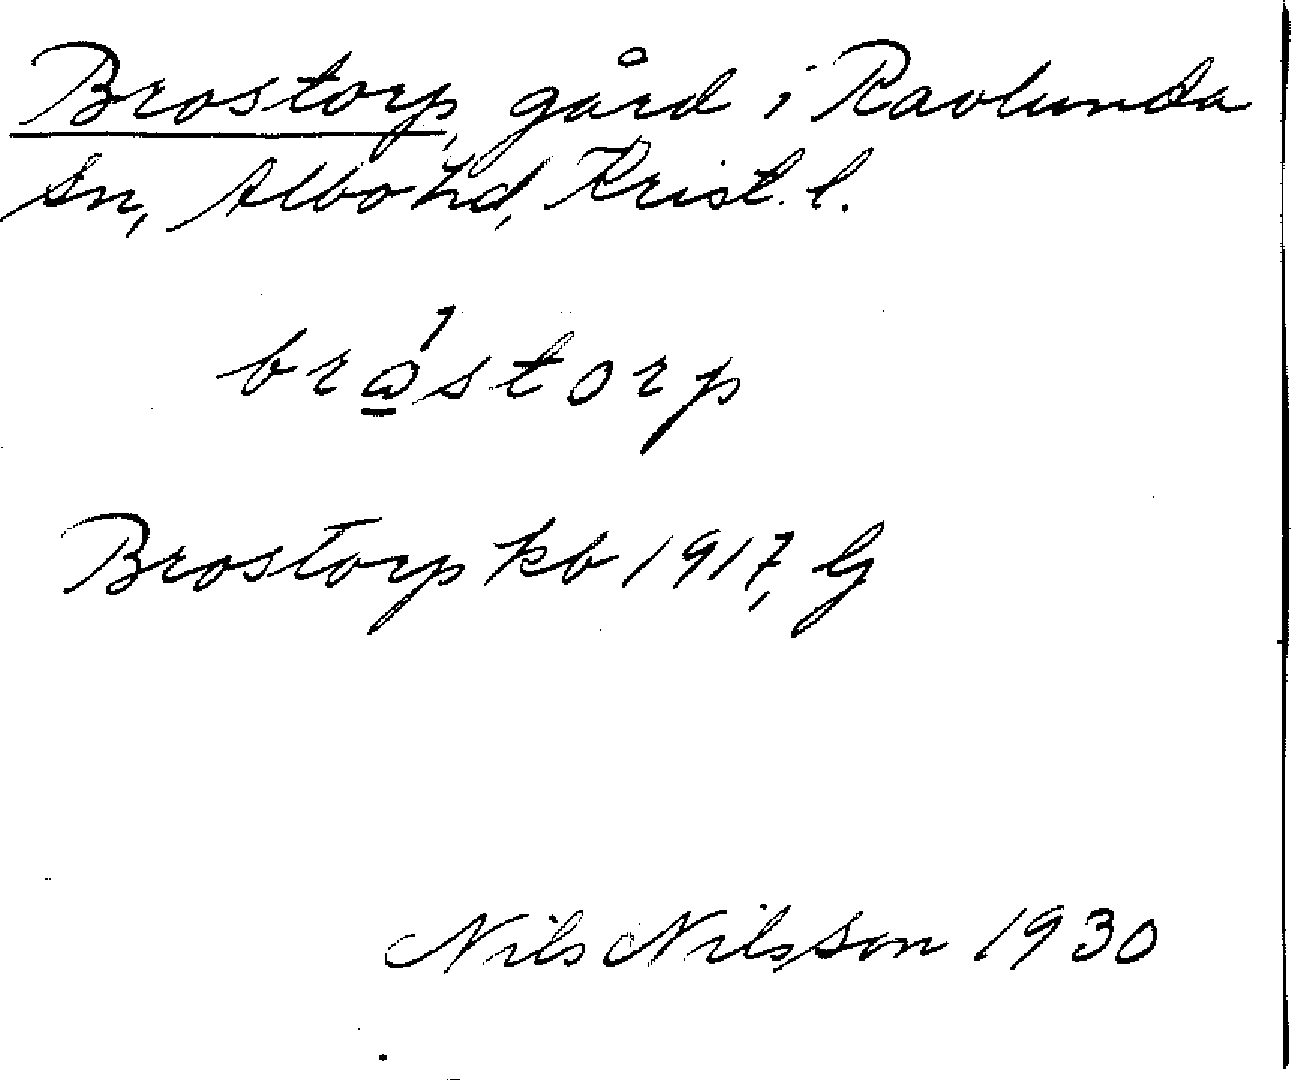 Brostorp, gård i Ravlunda
sn, Albo hd, Krist. l.
brώ̱storp
Brostorp kb 1917, G
Nils Nilsson 1930